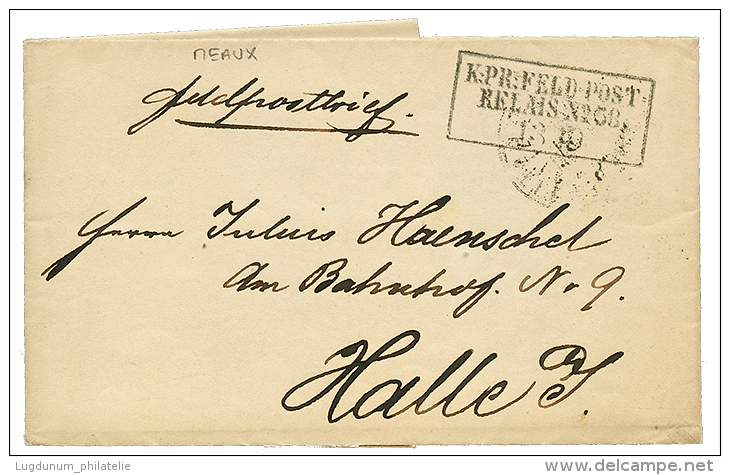 MEAUX
Feldpostbrief.
K:PR:FELD-POST-
RELAIS No 66.
Herrn Julius Haenschel
Am Bahnhof. No 9.
Halle a/S.
Lugdunum_philatelie
www.delcampe.net